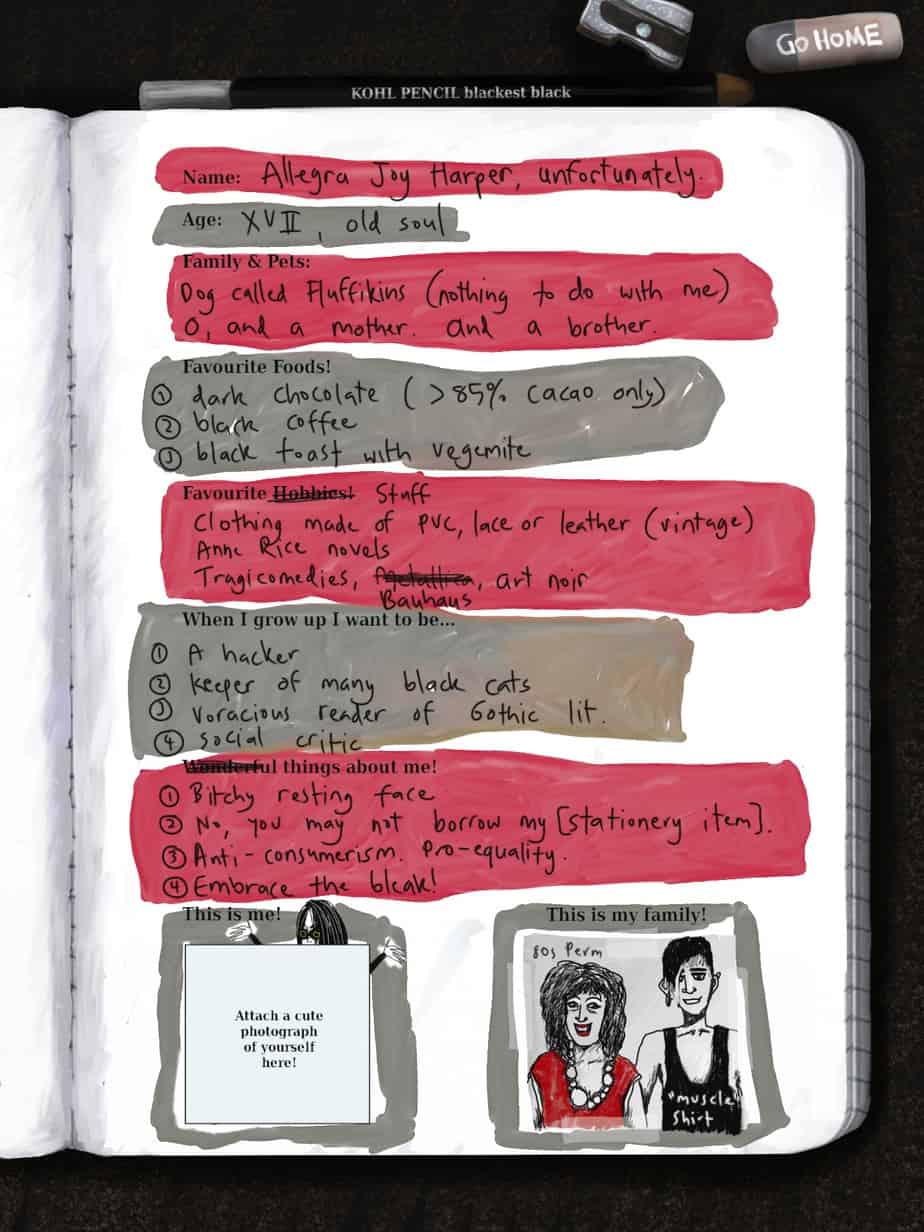 GO HOME
KOHL PENCIL blackest black
Name: Allegra Joy Harper, unfortunately.
Age: XVII, old soul
Family & Pets:
Dog called Fluffikins (nothing to do with me)
O, and a mother. and a brother.
Favourite Foods!
① dark chocolate (>85% cacao only)
② black coffee
③ black toast with vegemite
Favourite Hobbies! Stuff
Clothing made of PVC, lace or leather (vintage)
Anne Rice novels
Tragicomedies, Metallica, art noir
Bauhaus
When I grow up I want to be...
① A hacker
② keeper of many black cats
③ voracious reader of Gothic lit.
④ social critic
Wonderful things about me!
① Bitchy resting face
② No, you may not borrow my [stationery item].
③ Anti-consumerism. Pro-equality.
④ Embrace the bleak!
This is me!
Attach a cute
photograph
of yourself
here!
This is my family!
80s Perm
"muscle"
shirt